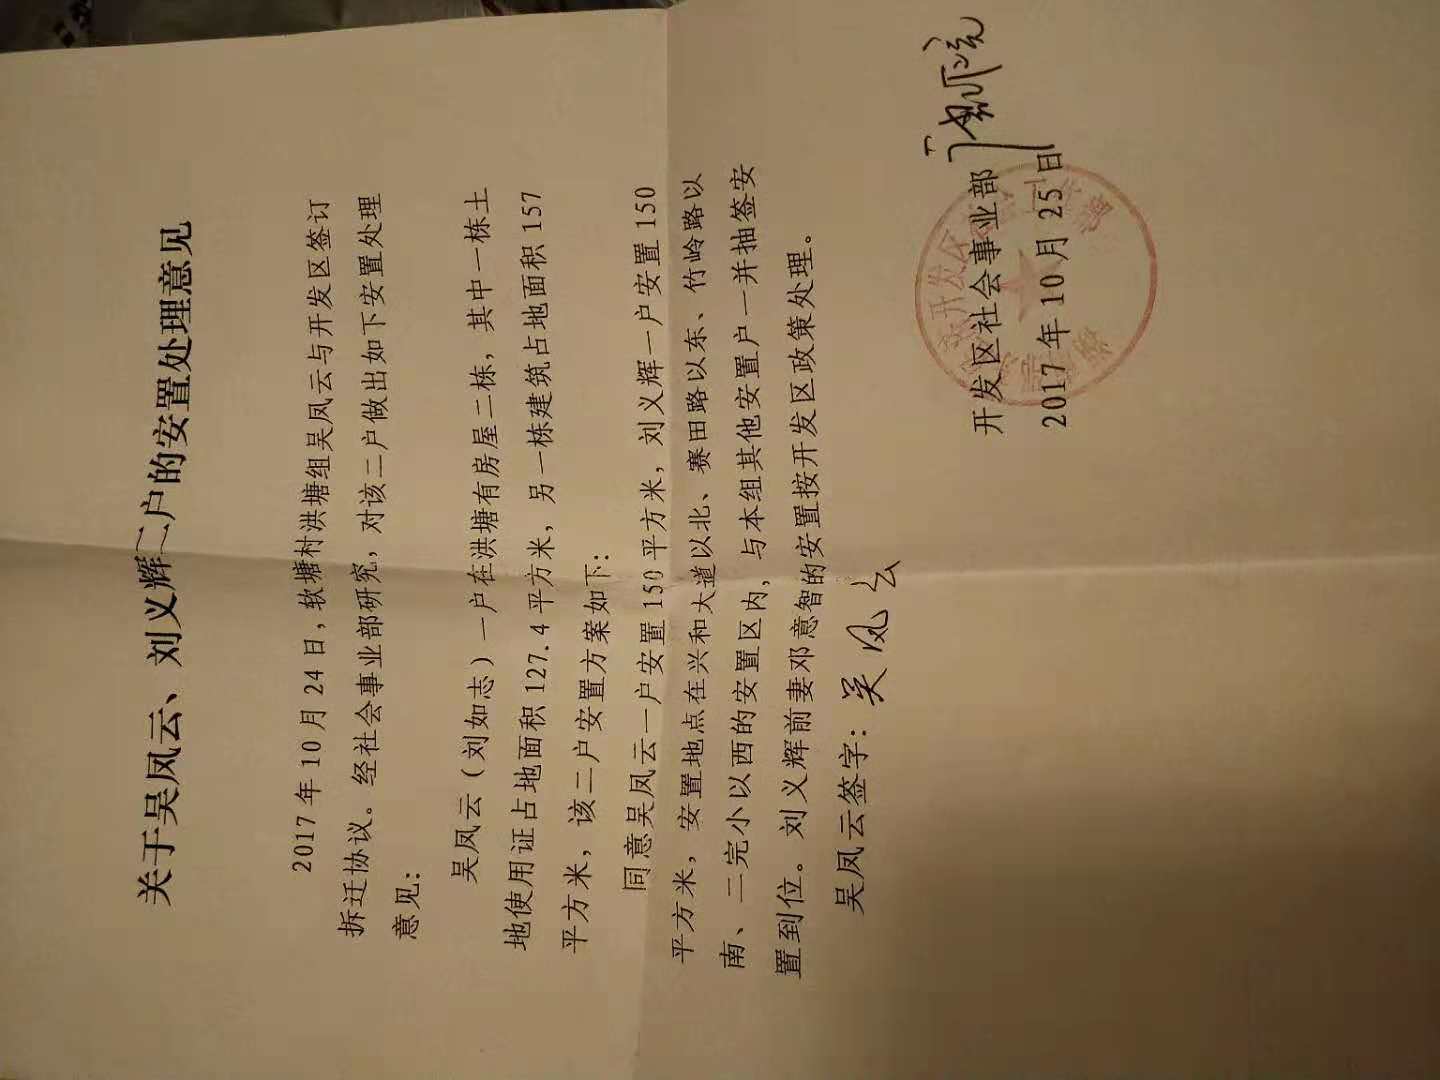 关于吴凤云、刘义辉二户的安置处理意见
2017年10月24日，软塘村洪塘组吴凤云与开发区签订
拆迁协议。经社会事业部研究，对该二户做出如下安置处理
意见：
吴凤云（刘如志）一户在洪塘有房屋二栋，其中一栋土
地使用证占地面积127.4平方米，另一栋建筑占地面积157
平方米，该二户安置方案如下：
同意吴凤云一户安置150平方米，刘义辉一户安置150
平方米，安置地点在兴和大道以北、赛田路以东、竹岭路以
南、二完小以西的安置区内，与本组其他安置户一并抽签安
置到位。刘义辉前妻邓意智的安置按开发区政策处理。
吴凤云签字：吴凤云
开发区社会事业部
2017年10月25日